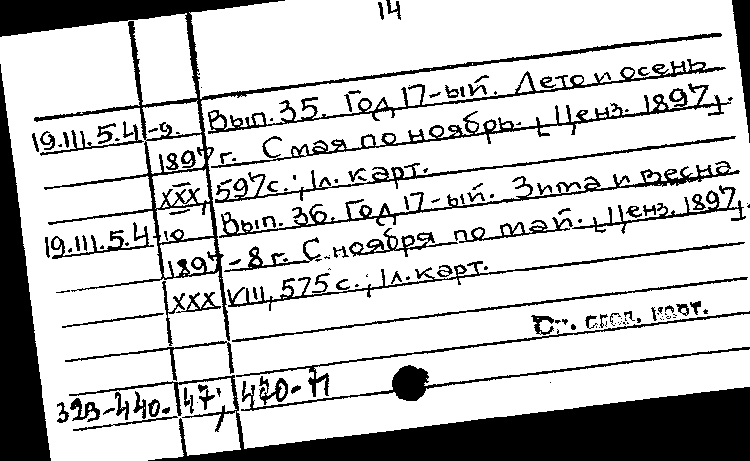 14
19.III.5.4-9. Вып. 35. Год 17-ый. Лето и осень
1897 г. С мая по ноябрь. [Ценз. 1897].
XXX, 597 с.; 1 л. карт.
19.III.5.4-10 Вып. 36. Год 17-ый. Зима и весна
1897-8 г. С ноября по май. [Ценз. 1897].
XXXVIII, 575 с.; 1 л. карт.
См. след. карт.
329-440-47; 470-71